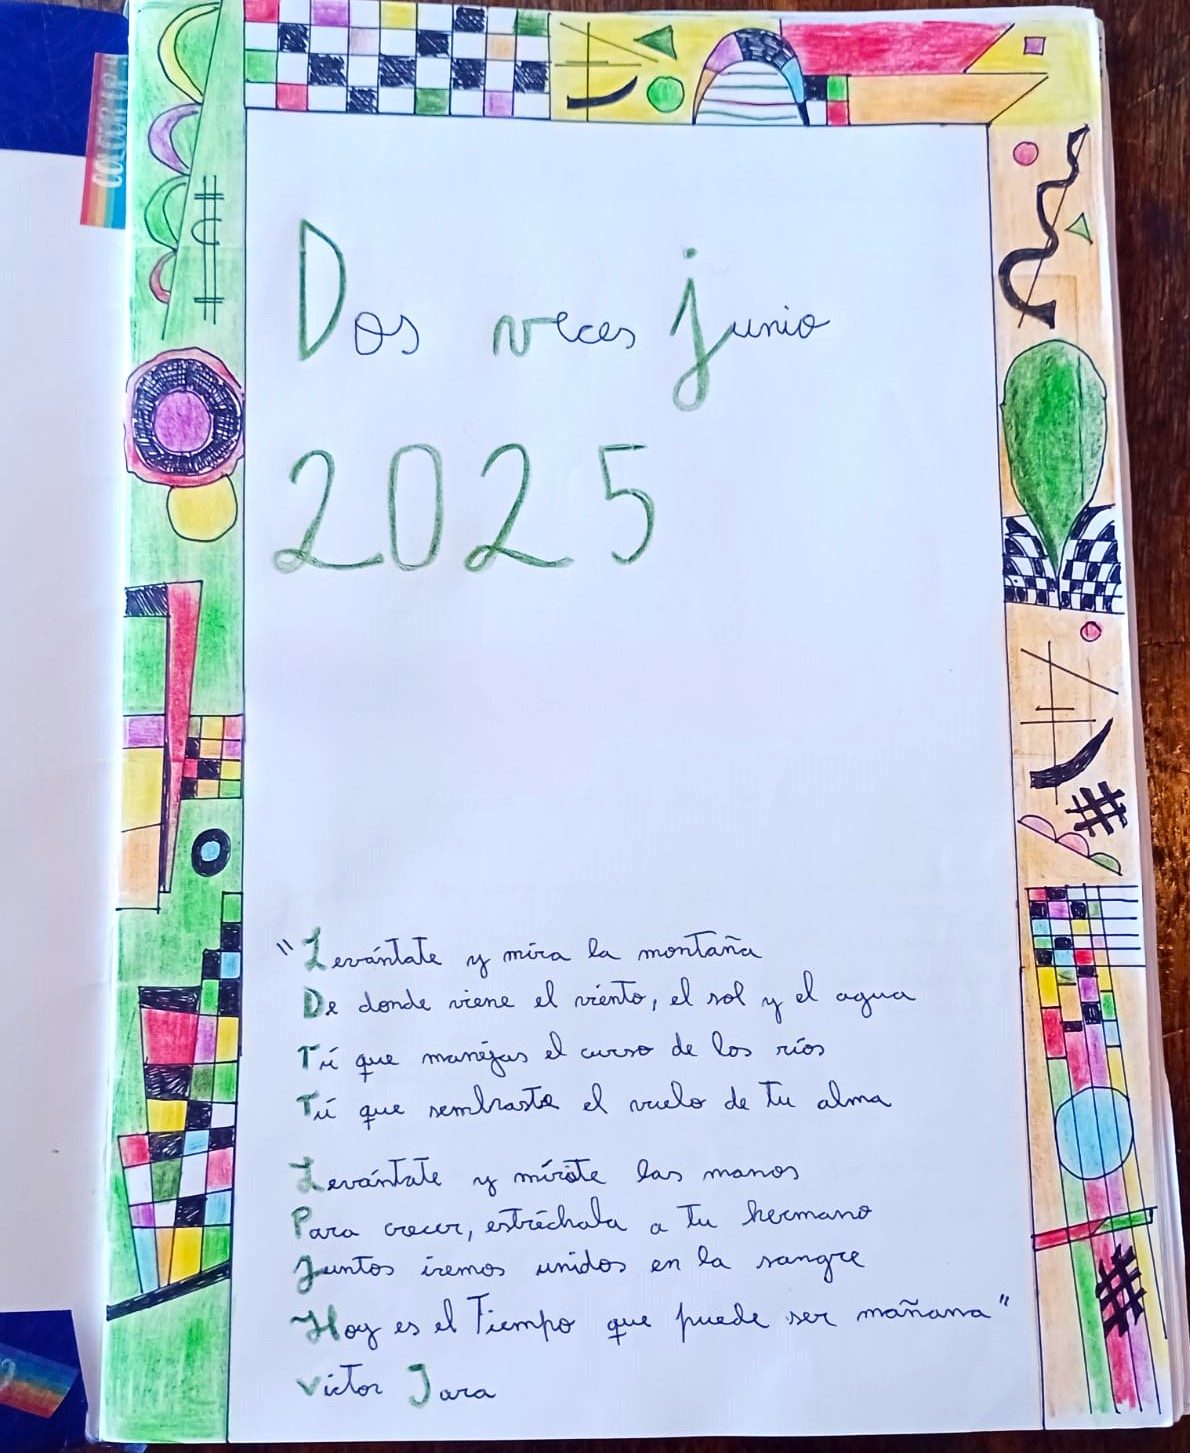 COLOORIN
Dos veces junio
2025
"Levántate y mira la montaña
De donde viene el viento, el sol y el agua
Tú que manejas el curso de los ríos
Tú que sembraste el vuelo de tu alma
Levántate y mírate las manos
Para crecer, estréchala a tu hermano
Juntos iremos unidos en la sangre
Hoy es el Tiempo que puede ser mañana"
Victor Jara